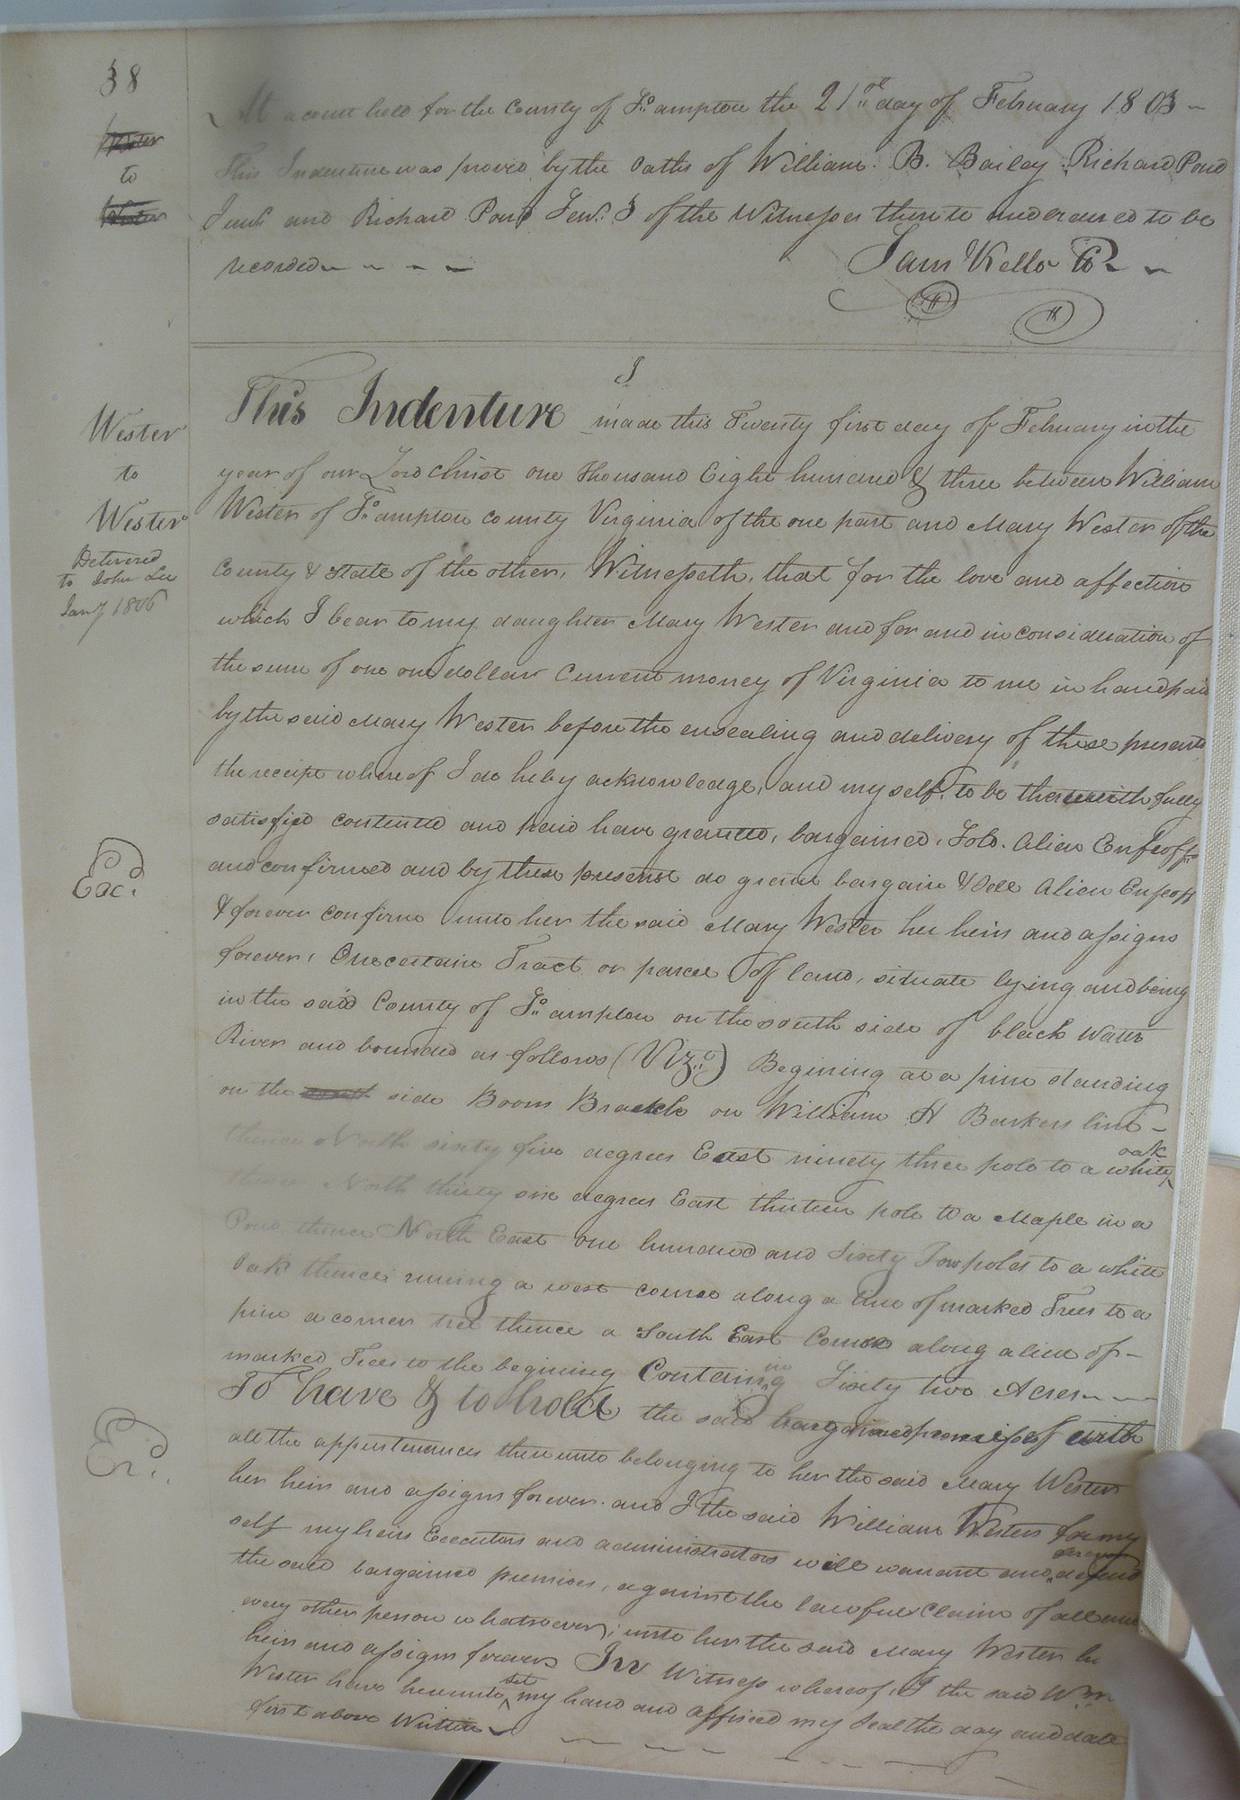 38
Wester
to
Wester
At a court held for the County of So:ampton the 21st day of February 1803
This Indenture was proved by the oaths of William B. Bailey Richard Pond
Junr and Richard Pond Senr. 3 of the Witnesses thereto and ordered to be
recorded
Sam Kello
I
This Indenture made this Twenty first day of February in the
year of our Lord Christ one thousand Eight hundred & three between William
Wester of So:ampton county Virginia of the one part and Mary Wester of the
County & State of the other, Witnesseth, that for the love and affection
which I bear to my daughter Mary Wester and for and in consideration of
the sum of one one dollar Current money of Virginia to me in hand paid
by the said Mary Wester before the ensealing and delivery of these presents
the receipt whereof I do heby acknowledge, and myself, to be therewith fully
satisfied contented and paid have granted, bargained, Sold. Alien Enfeoff
and confirmed and by these presents do grant bargain & Sell Alien Enfeoff
& forever confirm unto her the said Mary Wester her heirs and assigns
forever, One certain Tract or parcel of land, situate lying and being
in the said County of So:ampton on the south side of black Water
River and bounded as follows (Viz.) Begining at a pine standing
on the side Boom Branch on William H Barkers line
thence North sixty five degrees East ninety three pole to a white oak
thence North thirty one degrees East thirteen pole to a Maple in a
Pond thence North East one hundred and Sixty Tow poles to a white
Oak thence runing a west course along a line of marked Trees to a
pine a corner tree thence a South East Course along a line of
marked Trees to the begining Containing Sixty two Acres
To have & to hold the said bargained premises with
all the appurtenances thereunto belonging to her the said Mary Wester
her heirs and assigns forever. and I the said William Wester for my
self my heirs Executors and administrators will warrant and forever defend
the said bargained premises, against the lawful Claim of all and
every other person whatsoever, unto her the said Mary Wester her
heirs and assigns forever In Witness whereof, I the said Wm
Wester have hereunto set my hand and affixed my Seal the day and date
first above Written
Wester
to
Wester
Delivered
to John Lee
Jany 1806
Exc.
Ex.